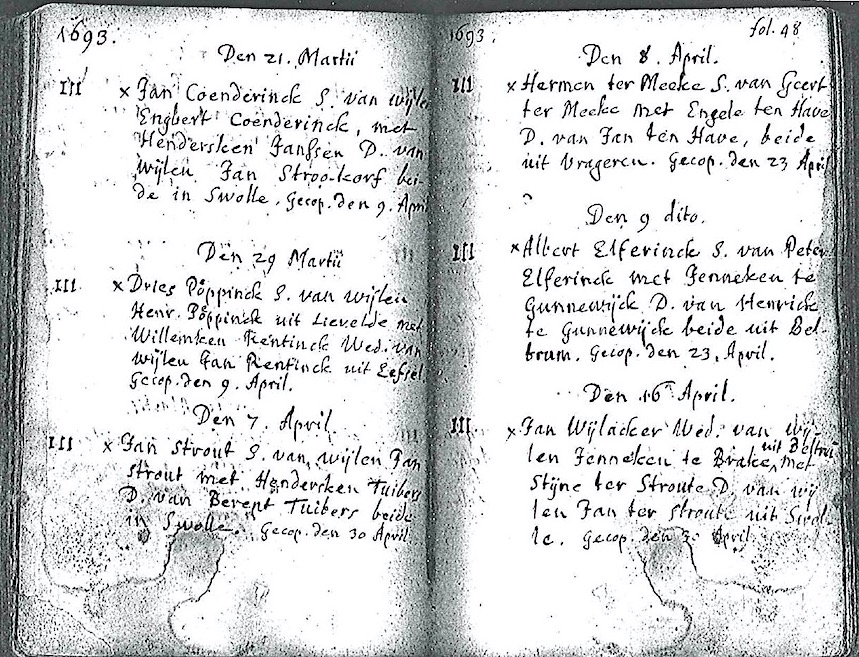 1693.
Den 21. Martii
III × Jan Coenderinck S. van wijlen
Engbert Coenderinck, met
Hendersken Janssen D. van
wijlen Jan Stroo-korf bei-
de in Swolle. Gecop. den 9. April
Den 29 Martii
III × Dries Pöppinck S. van wijlen
Henr. Pöppinck uit Lievelde met
Willemken Rentinck Wed. van
wijlen Jan Rentinck uit Eefsel.
Gecop. den 9. April.
Den 7. April.
III × Jan Strout S. van wijlen Jan
Strout met Hendersken Tuibers
D. van Berent Tuibers beide
in Swolle. Gecop. den 30 April
1693. fol. 48
Den 8. April.
III × Hermen ter Meeke S. van Geert
ter Meeke met Engele ten Have
D. van Jan ten Have, beide
uit Vrageren. Gecop. den 23 April
Den 9 dito.
III × Albert Elferinck S. van Peter
Elferinck met Jenneken te
Gunnewijck D. van Henrick
te Gunnewijck beide uit Bel
trum. Gecop. den 23, April.
Den 16 April.
III × Jan Wijlacker Wed. van wij
len Jenneken te Brake, uit Beltru met
Stijne ter Stroute D. van wij
len Jan ter Stroute uit Swol
le. Gecop. den 30 April